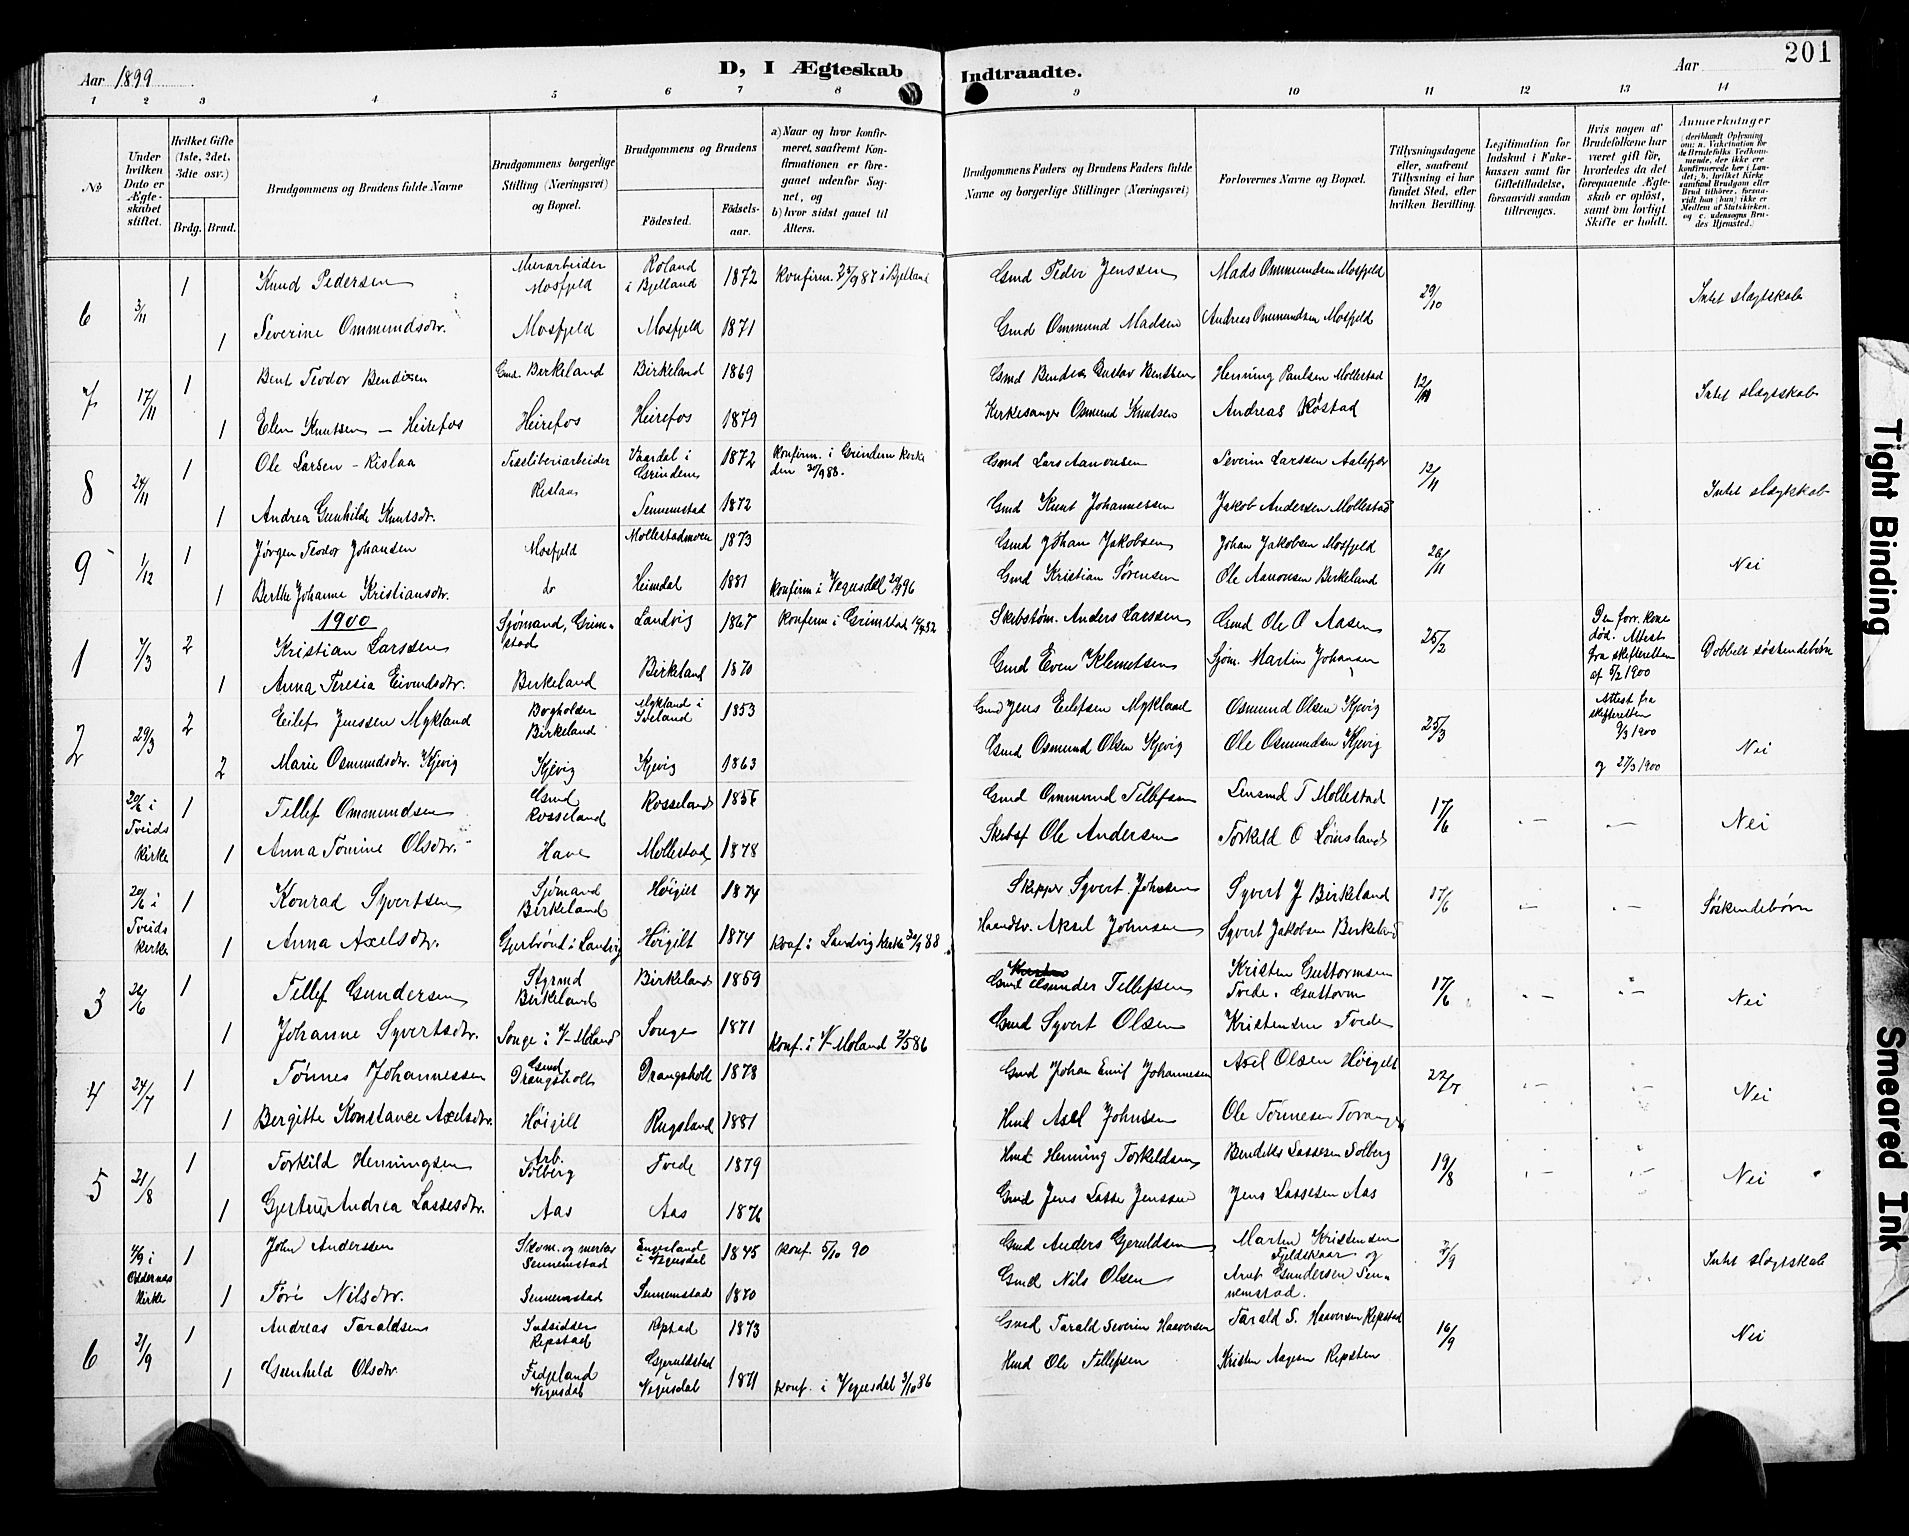 201
Aar 1899
D, I Ægteskab Indtraadte.
Aar
1 2 3 4 5 6 7 8 9 10 11 12 13 14
No
Under hvilken Dato er Ægteskabet stiftet.
Hvilket Gifte (1ste, 2det, 3die osv.)
Brdg. Brud.
Brudgommens og Brudens fulde Navne
Brudgommens borgerlige Stilling (Næringsvei) og Bopæl.
Brudgommens og Brudens
Fødested.
Fødselsaar.
a) Naar og hvor konfirmeret, saafremt Konfirmationen er foregaaet udenfor Sognet, og
b) hvor sidst gaaet til Alters.
Brudgommens Faders og Brudens Faders fulde Navne og borgerlige Stillinger (Næringsvei)
Forlovernes Navne og Bopæl.
Tillysningsdagene eller, saafremt Tillysning ei har fundet Sted, efter hvilken Bevilling.
Legitimation for Indskud i Enkekassen samt for Giftetilladelse, forsaavidt saadan tiltrænges.
Hvis nogen af Brudefolkene har været gift før, hvorledes da det foregaaende Ægteskab er opløst, samt om lovligt Skifte er holdt.
Anmærkninger
6 3/11 1 Knud Pedersen Murarbeider Mosfjeld Roland i Bjelland 1872 Konfirm. i Bjelland Gmd Peder Jenssen Mads Ommundsen Mosfjeld 29/10 Intet slægtskab
1 Severine Ommundsdtr. Mosfjeld Mosfjeld 1871 Gmd Ommund Madsen Andreas Ommundsen Mosfjeld
7 17/11 1 Bent Teodor Bendixen Gmd. Birkeland Birkeland 1869 Gmd Gustav Bentsen Henning Paulsen Mollestad 12/11 Intet slægtskab
1 Elen Knutsen - Heirefos Heirefos Heirefos 1879 Kirkesanger Osmund Knutsen Andreas Røstad
8 24/11 1 Ole Larsen - Rislaa Træsliberiarbeider Rislaa Vaardal i Grindem 1872 Konfirm. i Grindem Kirke den Gmd Lars Aanonsen Severin Larssen Aalefjær 12/11 Intet slægtskab
1 Andrea Gunhilde Knutsdtr. Sennemstad 1872 Gmd Knut Johannessen Jakob Andersen Mollestad
9 1/12 1 Jørgen Teodor Johansen Mosfjeld Mollestadmoen 1873 Gmd Johan Jakobsen Johan Jakobsen Mosfjeld 26/11 Nei
1 Berthe Johanne Kristiansdtr. do Heimdal 1881 Konfirm i Vegusdal 96 Gmd Kristian Sørensen Ole Aanonsen Birkeland
1900
1 7/3 2 Kristian Larssen Sjømand, Grimstad Landvig 1867 Konfirm i Grimstad Skibstøm. Anders Larssen Gmd Ole O Aasen 25/2 Den forr. kone død. Attest fra skifteretten af 5/2 1900 Dobbelt søskendebørn
1 Anna Teresia Eivindsdtr. Birkeland Birkeland 1870 Gmd Even Klemetsen Sjøm. Martin Johansen
2 29/3 2 Eilef Jenssen Mykland Birkeland Mykland i Iveland 1853 Gmd Jens Eilefsen Mykland Osmund Olsen Kjevig 25/3 Attest fra skifteretten 9/3 1900 og 27/3 1900 Nei
2 Marie Osmundsdtr. Kjevig Kjevig Kjevig 1863 Gmd Osmund Olsen Kjevig Ole Osmundsen Kjevig
20/6 i Tveids Kirke 1 Tellef Ommundsen Gmd Rosseland Rosseland 1856 Gmd Ommund Tellefsen T Mollestad 17/6 Nei
1 Anna Tomine Olsdtr. Have Mollestad 1878 Skibsf Ole Andersen Torkild O Lømsland
20/6 i Tveids Kirke 1 Konrad Syvertsen Sjømand Birkeland Høigilt 1874 Skipper Syvert Johnsen Syvert J Birkeland 17/6 Søskendebørn
1 Anna Axelsdtr. Gjerbrønd i Landvig Høigilt 1874 Konf i Landvig Kirke 88 Haandv. Aksel Johnsen Syvert Jakobsen Birkeland
3 26/6 1 Tellef Gundersen Styrmd Birkeland Birkeland 1859 Gmd Gunder Tellefsen Kristen Guttormsen Tvede, Guttorm 17/6 Nei
1 Johanne Syvertsdtr. Songe i V-Moland Songe 1871 Konf. i V-Moland 2/5 86 Gmd Syvert Olsen Kristensen Tvede
4 24/7 1 Tønnes Johannessen Gmd Drangsholt Drangsholt 1878 Gmd Johan Emil Johannesen Axel Olsen Høigilt 22/7 Nei
1 Bergitte Konstance Axelsdtr. Høigilt Rugsland 1881 Hmd Axel Johnsen Ole Tønnesen
5 21/8 1 Torkild Henningsen Arb. Solberg Tvede 1879 Hmd Henning Torkildsen Bendiks Lassesen Solberg 19/8 Nei
1 Gjertrud Andrea Lassesdtr. Aas Aas 1876 Gmd Jens Lasse Jenssen Jens Lassesen Aas
4/9 i Oddernes Kirke 1 John Anderssen Skom. og Sennemstad Engesland i Vegusdal 1845 Konf 5/10 90 Gmd Anders Gjeruldsen Marten Kristensen Fjeldskaar og 2/9 Intet slægtskab
1 Tore Nilsdtr. Sennemstad Sennemstad 1870 Gmd Nils Olsen Arnt Gundersen Sennemstad.
6 21/9 1 Andreas Taraldsen Indsidder Repstad Repstad 1873 Gmd Tarald Severin Haaversen Tarald S. Haaversen Repstad 16/9 Nei
1 Gunhild Olsdtr Fidjeland Vegusdal Gjeruldstad Vegusdal 1871 Konf. i Vegusdal 3/10 86 Hmd Ole Tellefsen Kristen Aagesen Repsten
Tight Binding
Smeared Ink